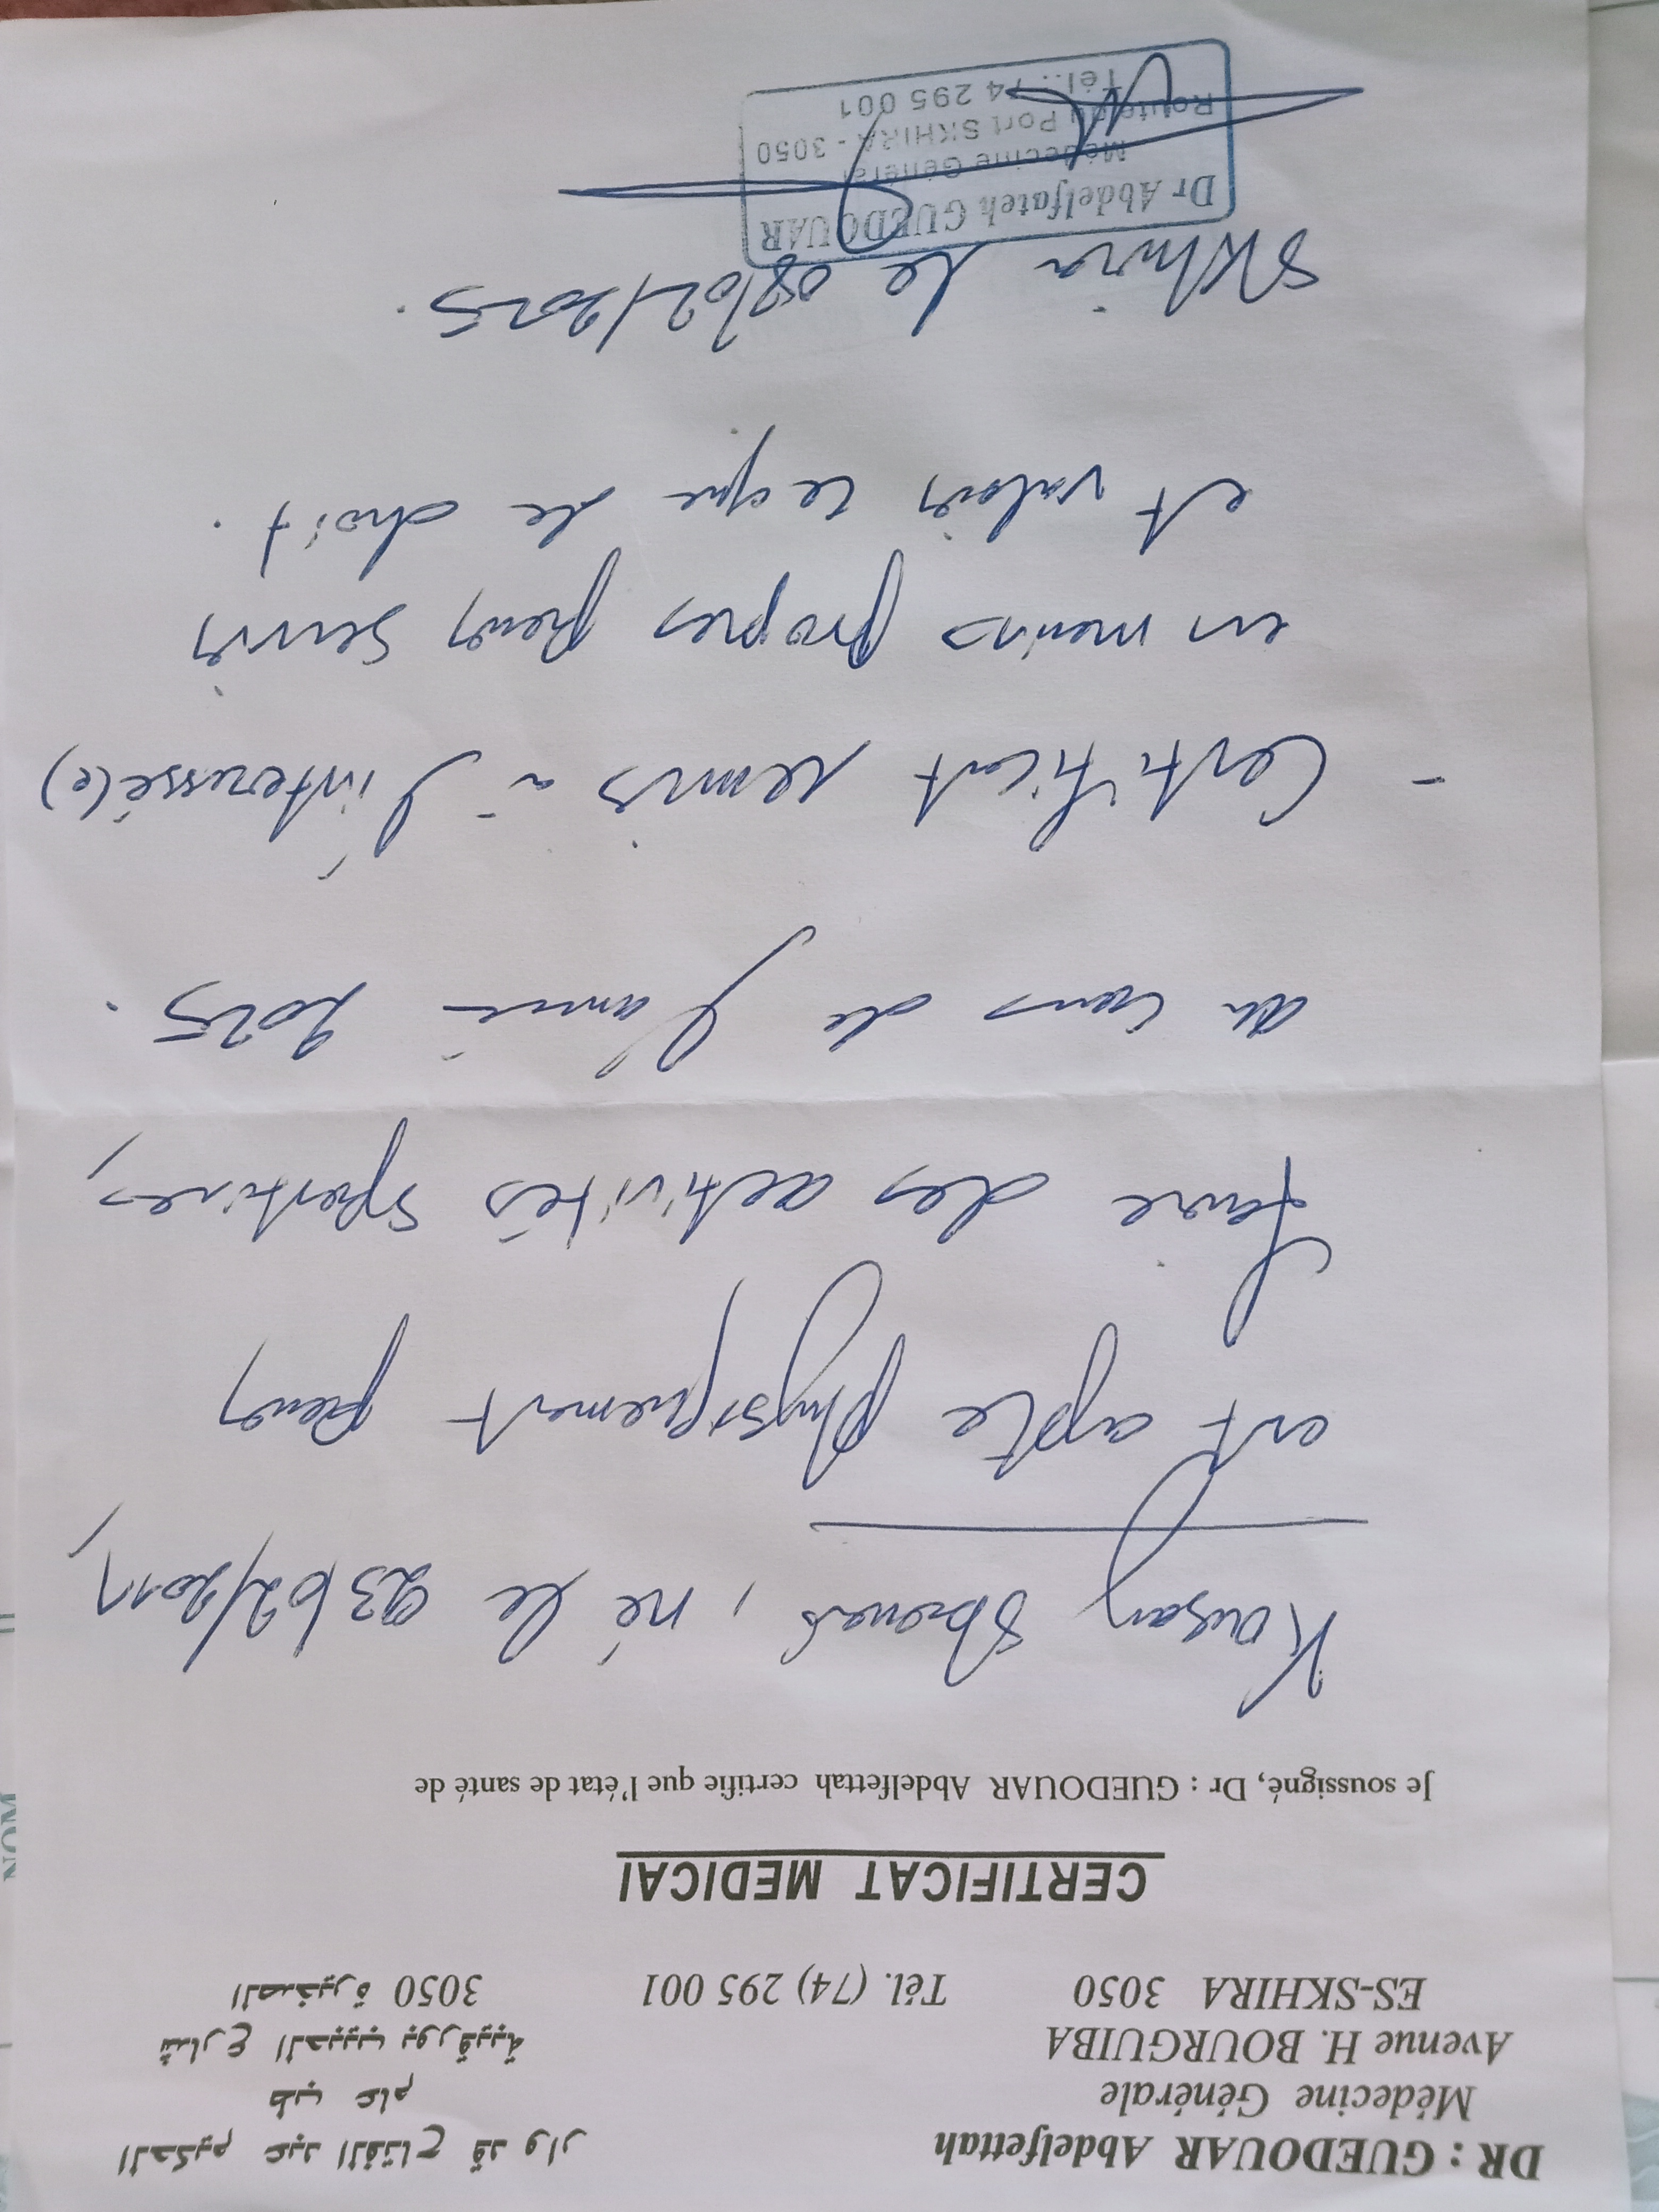 DR : GUEDOUAR Abdelfettah
Médecine Générale
Avenue H. BOURGUIBA
ES-SKHIRA 3050
Tél. (74) 295 001
الحكيم عبد الفتاح قدوار
طب عام
شارع الحبيب بورقيبة
الصخيرة 3050
CERTIFICAT MEDICAL
Je soussigné, Dr : GUEDOUAR Abdelfettah certifie que l'état de santé de
né le 23/02/2011,
est apte physiquement pour
faire des activités sportives,
au cours de l'année 2025.
- Certificat remis à l'interessé(e)
en mains propres pour servir
et valoir ce que de droit.
Skhira le 08/02/2025.
Dr Abdelfateh GUEDOUAR
Médecine Général
Route du Port SKHIRA - 3050
Tél.: 74 295 001
NOM